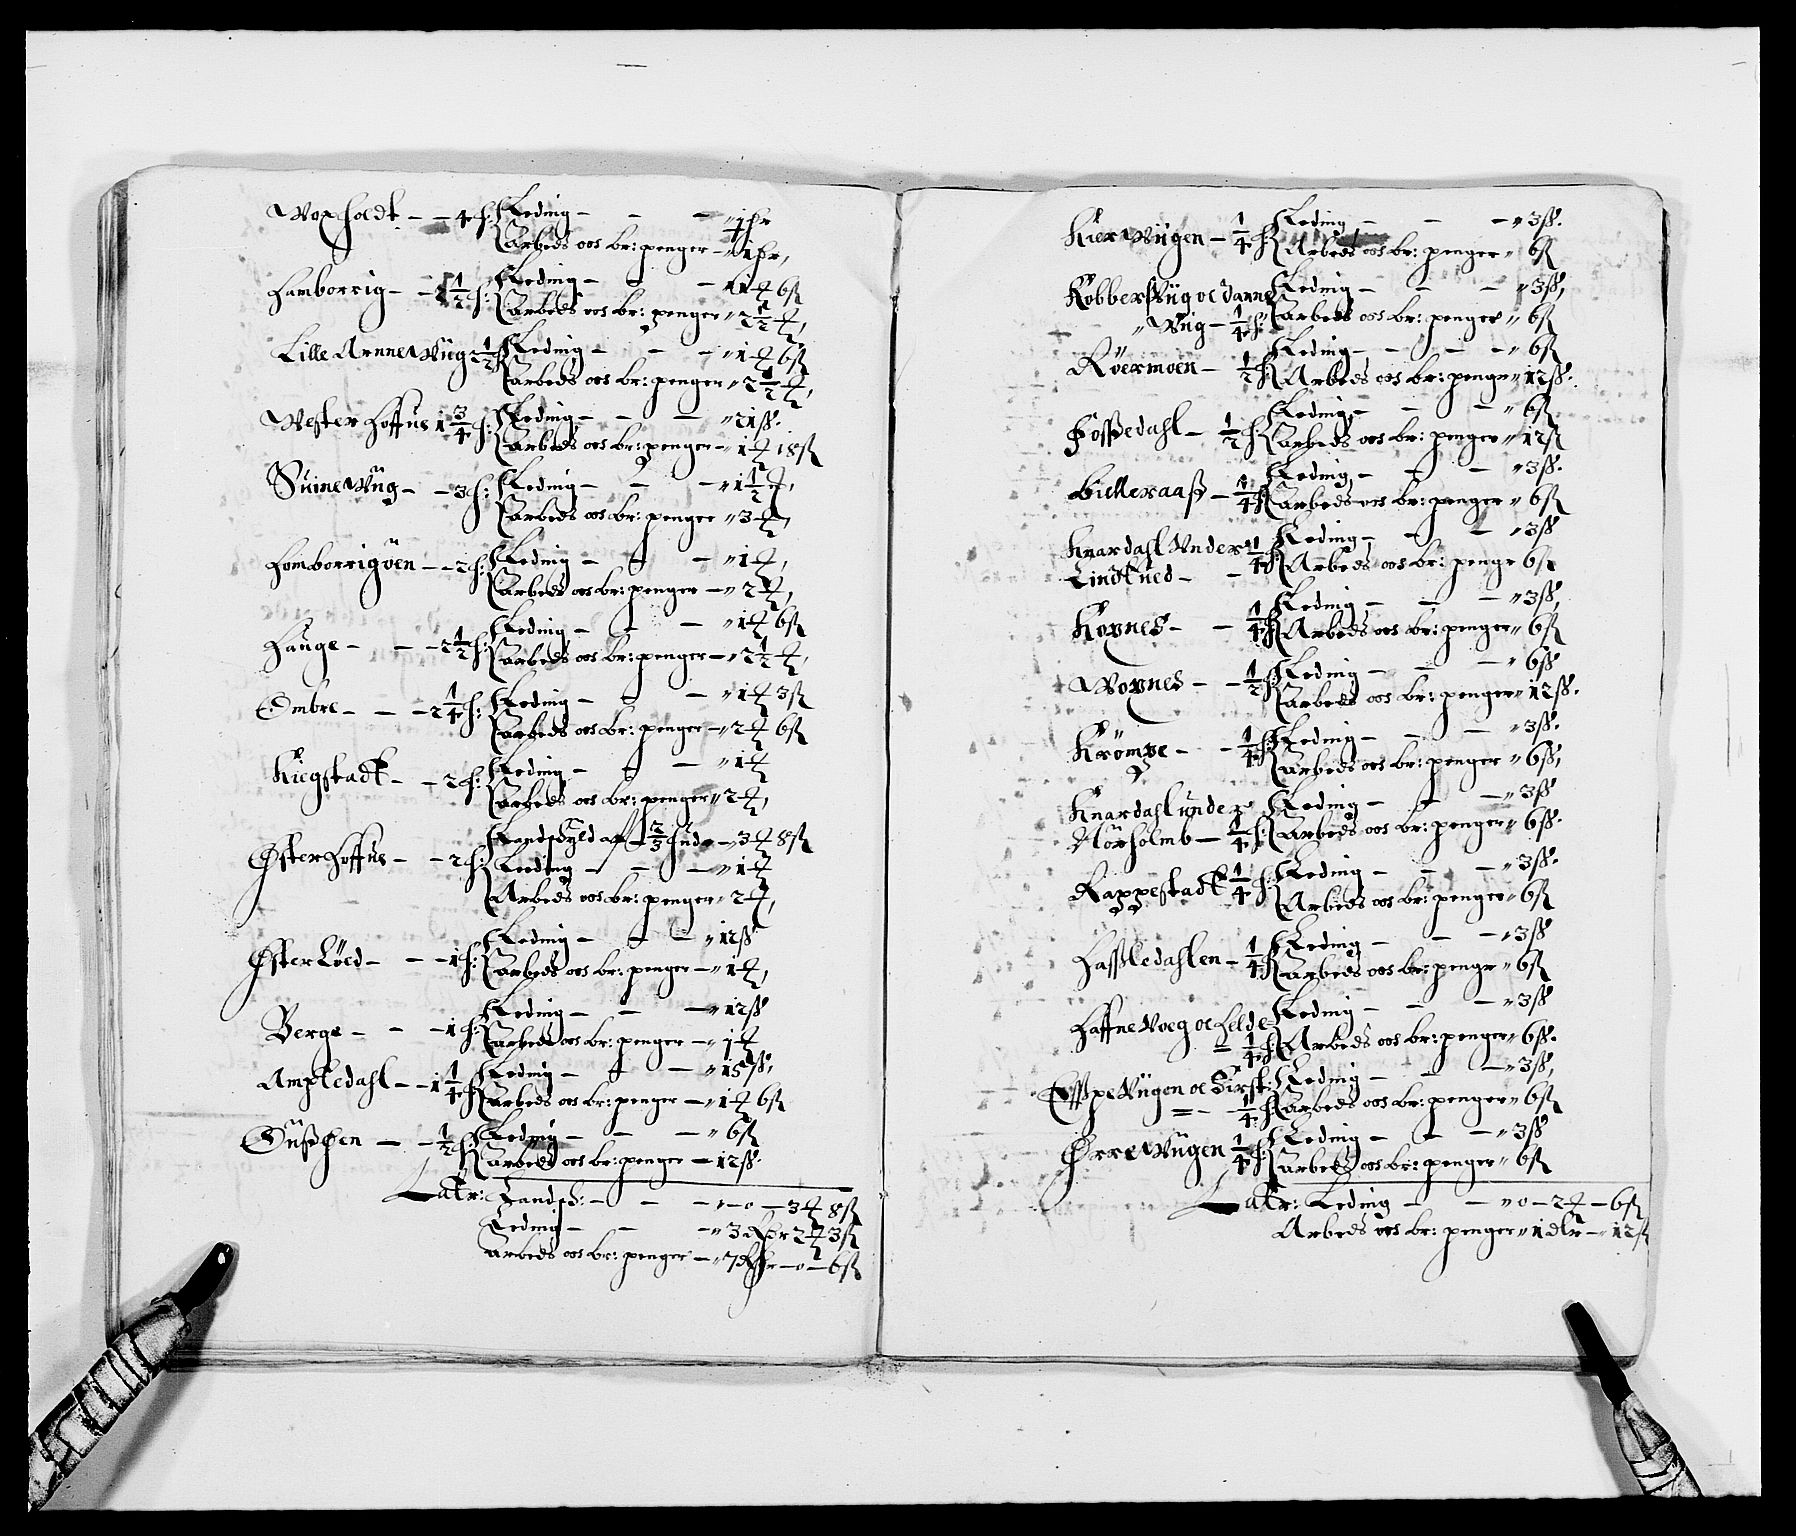 Woxholdt – – 4 h: Leding – – – " 1/2 dr
Arbeds oos br: penger – " 1 dr,
Homborrig – – 2 1/2 h: Leding – – – " 1 ort 6 ß
Arbeds oos br: penger " 2 1/2 ort,
Lille ArnneWiig 2 1/2 h: Leding – – – " 1 ort 6 ß
Arbeds oos br: penger " 2 1/2 ort,
Wester Hoffus 1 3/4 h: Leding – – – " 21 ß.
Arbeds oos br: penger – " 1 ort 18 ß
SuineWiig – – 3 h: Leding – – – " 1 1/2 ort,
Arbeds oos br: penger " 3 ort,
Homborrigöen – – 2 h: Leding – – – " 1 ort,
Arbeds oos br: penger – " 2 ort,
Hauge – – – 2 1/2 h: Leding – – – " 1 ort 6 ß
Arbeds oos br: penger – " 2 1/2 ort,
Ombre – – – 2 1/4 h: Leding – – – " 1 ort 3 ß
Arbeds oos br: penger – " 2 ort 6 ß
Kiegstadt – – 2 h: Leding – – – " 1 ort
Arbeds oos br: penger " 2 ort,
Landschyld aff 2/3 hude – 3 ort 8 ß
Øster Hoffus – – 2 h: Leeding – – – " 1 ort
Arbeds oos br: penger " 2 ort,
Øster Löed – – – 1 h: Leding – – – " 12 ß
Arbeds oos br: penger – " 1 ort,
Berge – – – 1 h: Leding – – – " 12 ß
Arbeds oos br: penger – " 1 ort
Ampledahl – – 1 1/4 h: Leding – – – " 15 ß,
Arbeds oos br: penger – " 1 ort 6 ß
– – 1/2 h: Leding – – – " 6 ß
Arbeds oos br: penger – 12 ß.
Latr: Landsch: – – – " – 0 – 3 ort 8 ß
Leding – – – " 3 Rdr 2 ort 3 ß
Arbeds oos br: penger – " 7 Rdr – 0 – 6 ß
KierWiigen – 1/4 h: Leding – – – " 3 ß.
Arbeds oos br: penger " 6 ß
KobberWiig oc Danne Leding – – – " 3 ß,
" Wiig – 1/4 h: Arbeds oos br: penger " 6 ß
Röermoen – 1/2 h: Leding – – – " 6 ß
Arbeds oos br: penger " 12 ß.
Fossedahl – 1/2 h: Leding – – – " 6 ß
Arbeds oos br: penger " 12 ß
Billeraass – 1/4 h: Leding – – – " 3 ß.
Arbeds oos br: penger " 6 ß
Knardahl Under 1/4 h: Leding – – – " 3 ß
Lindtued – – Arbeds oos br: penger 6 ß
Roxnes – – 1/4 h: Leding – – – " 3 ß,
Arbeds oos br: penger " 6 ß
Woxnes – – 1/2 h: Leding – – – " 6 ß
Arbeds oos br: penger " 12 ß.
Krömpe – – 1/4 h: Leding – – – " 3 ß.
Arbeds oos br: penger " 6 ß,
Knardahl under Leding – – – " 3 ß
Mörholmb – 1/4 h: Arbeds oos br: penger " 6 ß.
Rappestadt 1/4 h: Leding – – – " 3 ß.
Arbeds oos br: penger " 6 ß
Hassledahlen – 1/4 h: Leding – – – " 3 ß
Arbeds oos br: penger " 6 ß
HaffneWoeg oc Helde Leding – – – " 3 ß
= 1/4 h: Arbeds oos br: penger " 6 ß.
EsspeWiigen oc Leding – – – " 3 ß,
= – 1/4 h: Arbeds oos br: penger " 6 ß
ØrreWiigen 1/4 h: Leding – – – " 3 ß
Arbeds oos br: penger " 6 ß
Latr: Leding – – " 0 – 2 ort – 6 ß
Arbeds oos br: penger " 1 dlr – " 12 ß